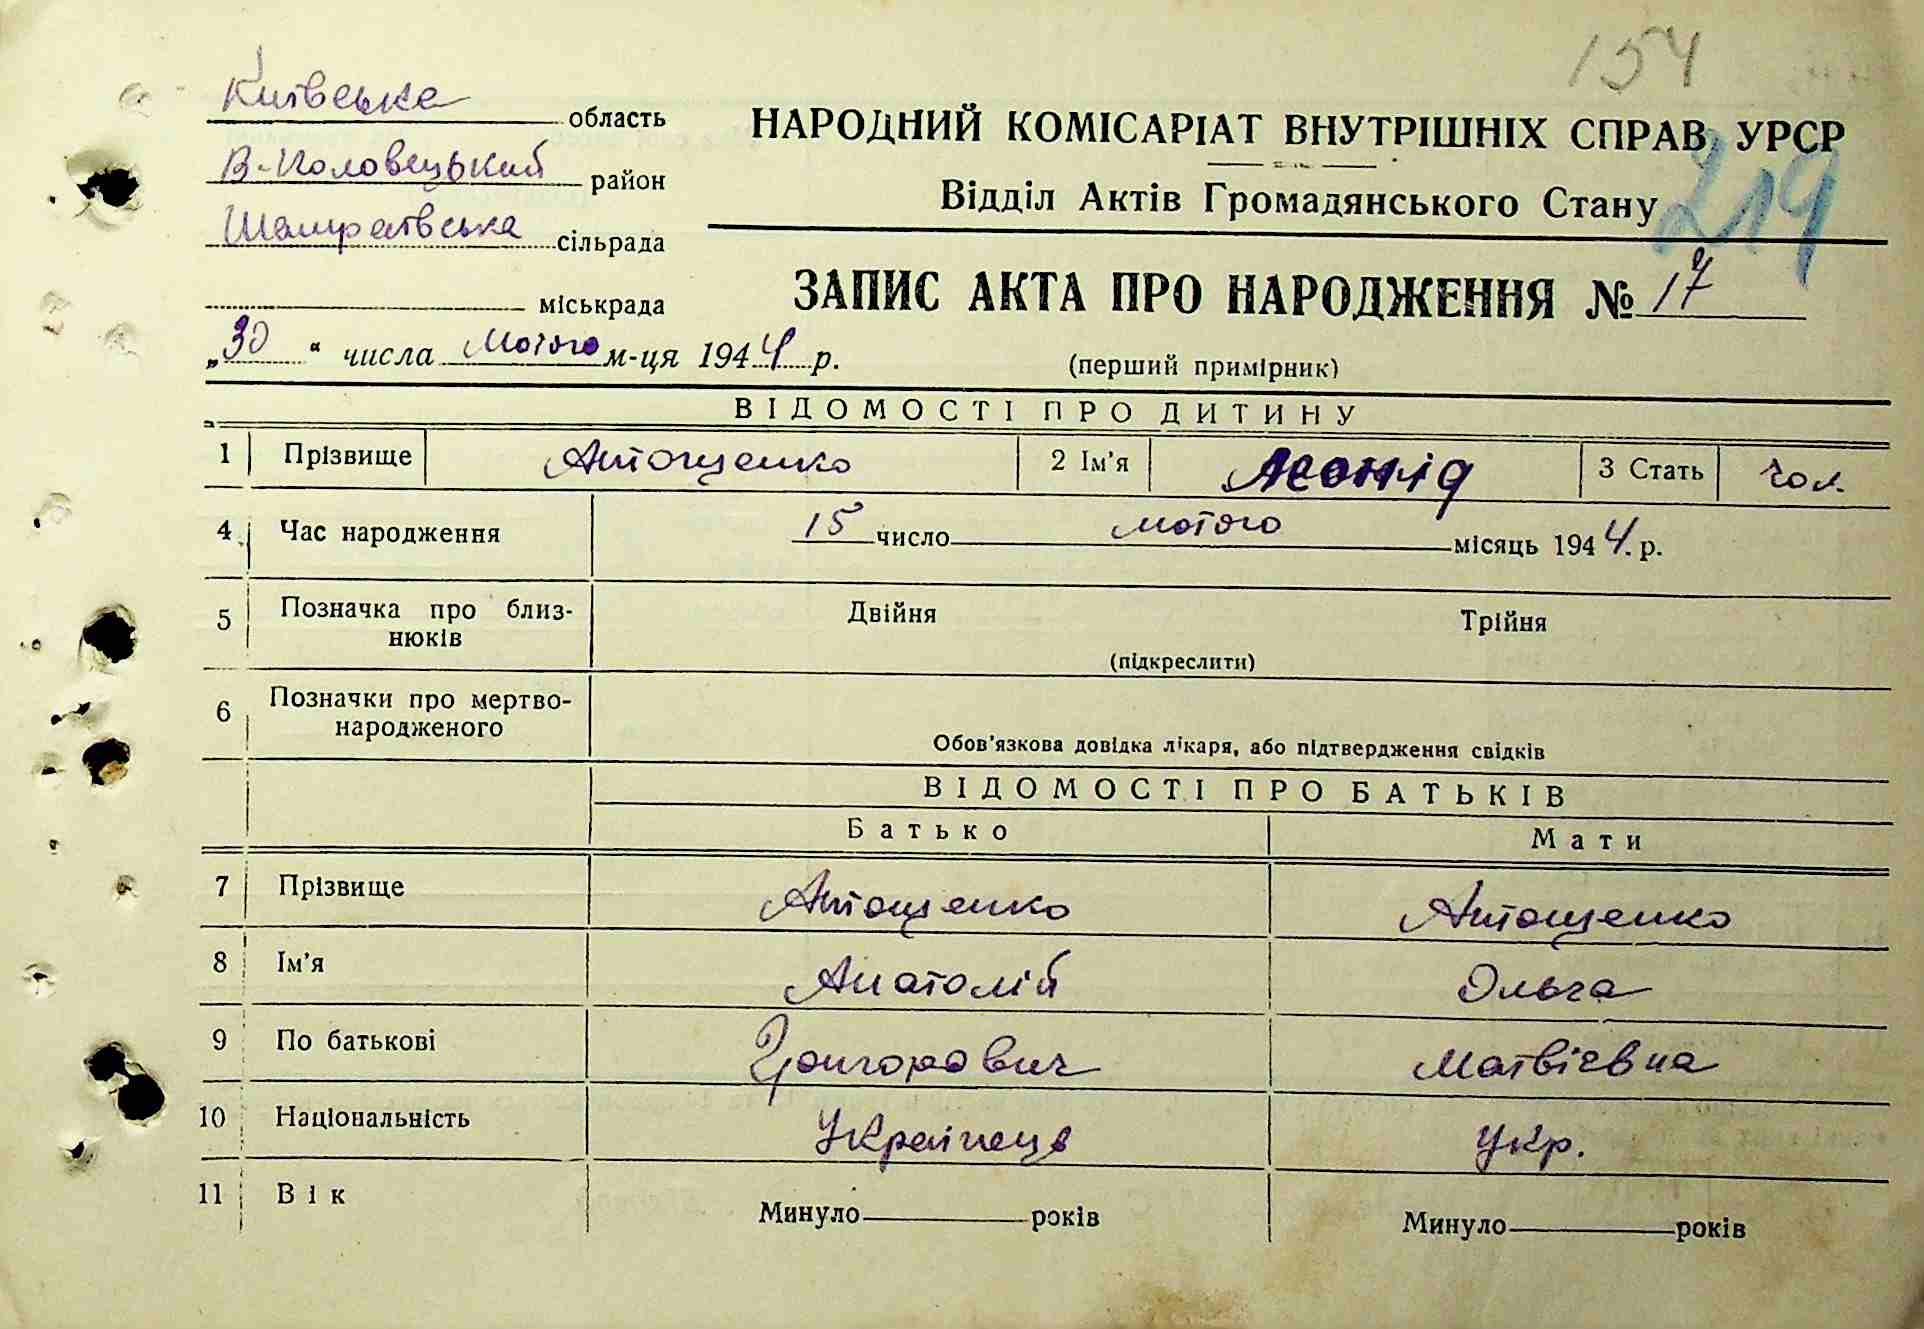 154
Київська область
НАРОДНИЙ КОМІСАРІАТ ВНУТРІШНІХ СПРАВ УРСР
В-Половецький район
219
Відділ Актів Громадянського Стану
Шамраївська сільрада
міськрада
ЗАПИС АКТА ПРО НАРОДЖЕННЯ № 17
„30“ числа Лютого м-ця 1944 р.
(перший примірник)
ВІДОМОСТІ ПРО ДИТИНУ
1 Прізвище Антощенко 2 Ім'я Леонід 3 Стать чол.
4 Час народження 15 число лютого місяць 1944. р.
5 Позначка про близ- Двійня Трійня
нюків
(підкреслити)
6 Позначки про мертво-
народженого
Обов'язкова довідка лікаря, або підтвердження свідків
ВІДОМОСТІ ПРО БАТЬКІВ
Батько Мати
7 Прізвище Антощенко Антощенко
8 Ім'я Анатолій Ольга
9 По батькові Григорович Матвієвна
10 Національність Українець Укр.
11 Вік Минуло років Минуло років